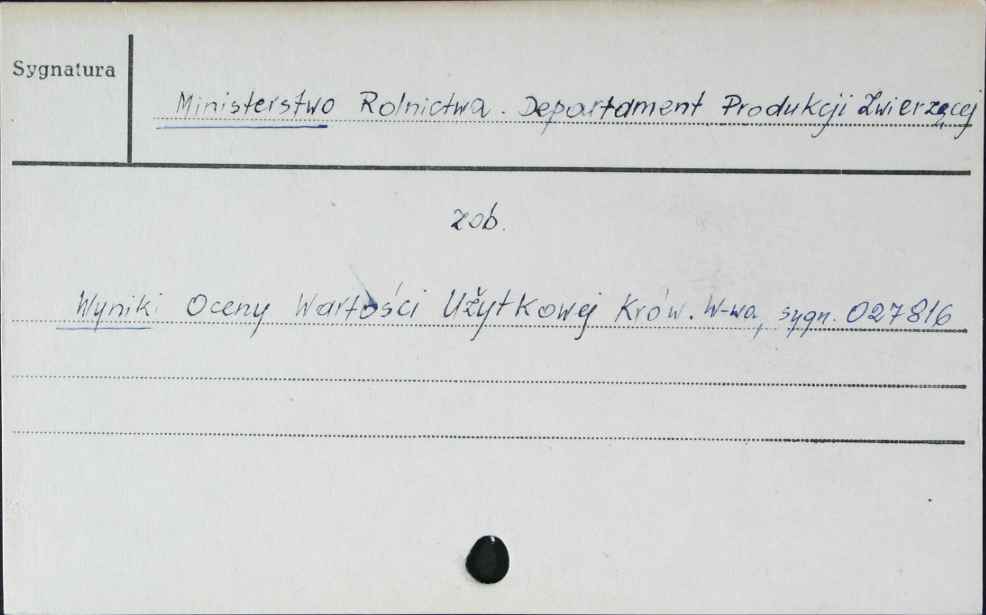 Sygnatura
Ministerstwo Rolnictwa. Departament Produkcji Zwierzęcej
zob.
Wyniki Oceny Wartości Użytkowej Krów. W-wa, sygn. 027816